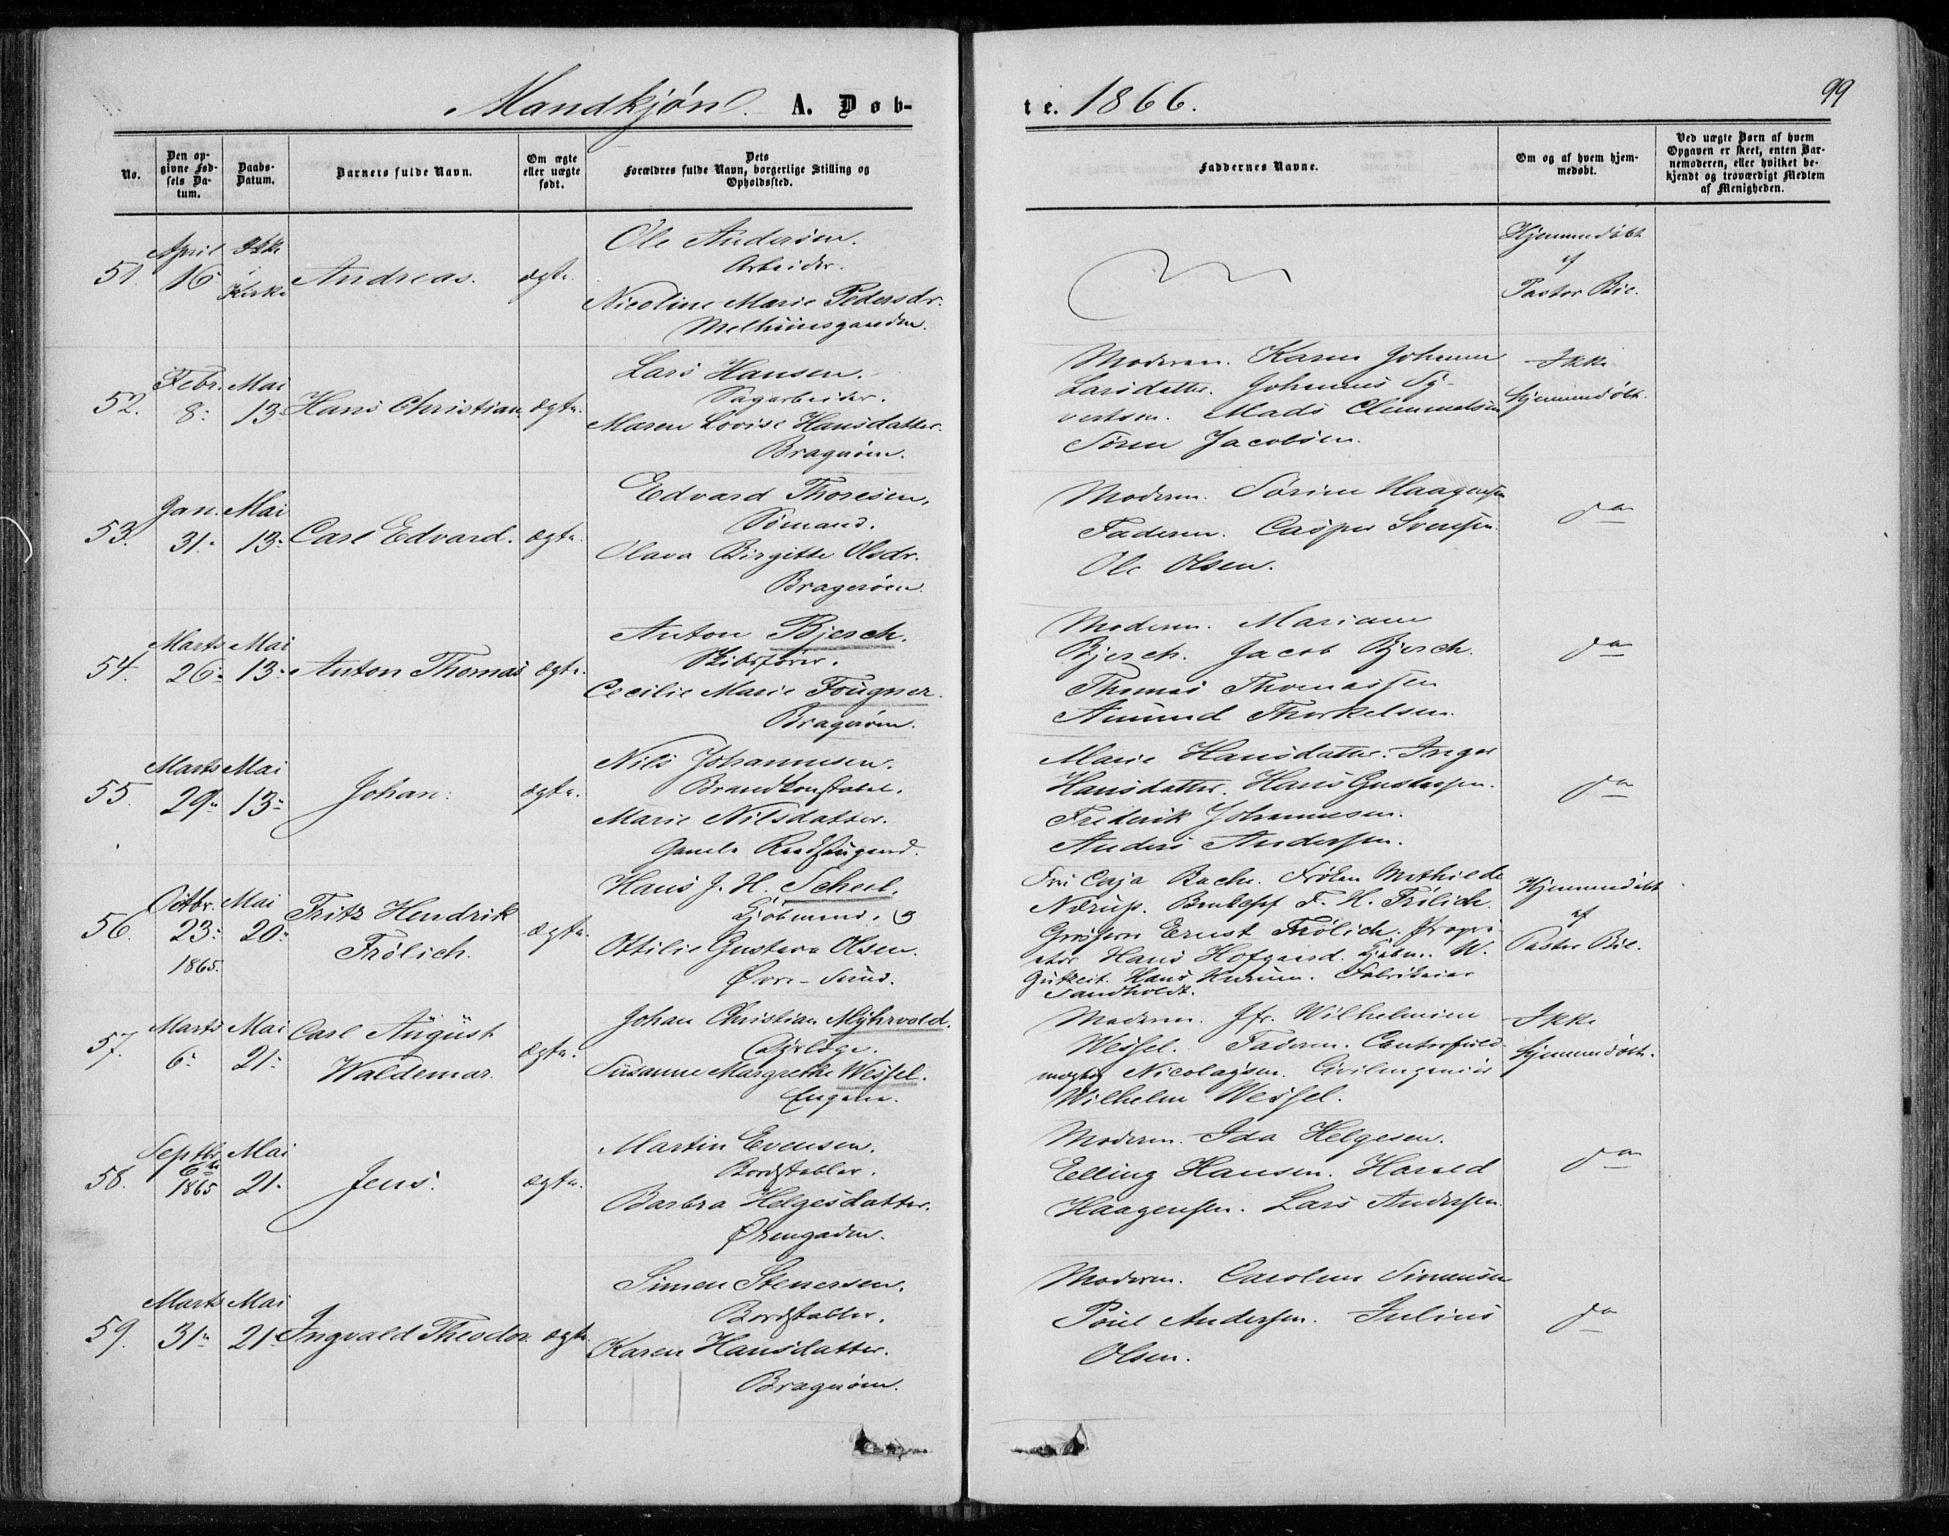 Mandkjøn. A. Døb-
te. 1866.
99
No.
Den op-
givne Fød-
sels Da-
tum.
Daabs-
Datum.
Barnets fulde Navn.
Om ægte
eller uægte
født.
Dets
Forældres fulde Navn, borgerlige Stilling og
Opholdssted.
Faddernes Navne.
Om og af hvem hjem-
medøbt.
Ved uægte Børn af hvem
Opgaven er skeet, enten Bar-
nemoderen, eller hvilket be-
kjendt og troværdigt Medlem
af Menigheden.
51.
April
16
Ikke
i
Kirke
Andreas.
ægte.
Ole Andersen.
Arbeider.
Nicoline Marie Pedersdr.
Melhuusgaarden.
Hjemmedøbt
af
Pastor Bie.
52.
Febr.
8.
Mai
13.
Hans Christian
ægte.
Lars Hansen.
Sagarbeider.
Maren Lovise Hansdatter.
Bragerøen.
Moderen. Karen Johanne
Larsdatter. Johannes Sy-
vertsen. Mads Clemmetsen
Søren Jacobsen.
Ikke
Hjemmedøbt.
53.
Jan.
31.
Mai
13.
Carl Edvard.
ægte.
Edvard Thoresen,
Sømand.
Olava Birgitte Olsdr.
Bragerøen.
Moderen. Sørine Haagensen
Faderen. Casper Svensen.
Ole Olsen.
do
54.
Marts
26.
Mai
13.
Anton Thomas
ægte.
Anton Bjerch.
Skibsfører.
Cecilie Marie Fougner.
Bragerøen.
Moderen. Mariane
Bjerch. Jacob Bjerch.
Thomas Thomassen
Amund Thorkelsen.
do
55.
Marts
29.
Mai
13.
Johan.
ægte.
Nils Johannesen.
Brandkonstabel.
Marie Nilsdatter.
Gamle
Marie Hansdatter. Inger
Hansdatter. Hans Gustavsen.
Frederik Johannesen.
Anders Andersen.
do
56.
Octbr.
23.
1865.
Mai
20.
Fritz Hendrik
Frølich.
ægte.
Hans J. H. Scheel.
Kjøbmand. og
Ottilie Gustava Olsen.
Øvre-Sund.
Fru Caja Bache. Frøken Mathilde
Nærup. F. H. Frølich.
Grosserer Ernst Frølich. Propri-
etær Hans Hofgaard. Kjøbm. W.
Gutzeit. Hans Fabrikeier
Sandholdt.
Hjemmedøbt
af
Pastor Bie.
57.
Marts
6.
Mai
21.
Carl August
Waldemar.
ægte.
Johan Christian Myhrvold.
Susanne Margrethe Wessel.
Engene.
Moderen. Jfr. Wilhelmine
Wessel. Faderen. Contorfuld-
mægtig Nicolaysen. Civilingeniør
Wilhelm Wessel.
Ikke
Hjemmedøbt.
58.
Septbr.
6te
1865
Mai
21.
Jens.
ægte.
Martin Evensen.
Bordstabler.
Barbra Helgesdatter.
Ørengaden.
Moderen. Ida Helgesen.
Elling Hansen. Harald
Haagensen. Lars Andersen.
do
59.
Marts
31.
Mai
21.
Ingvald Theodor
ægte.
Simen Stenersen.
Bordstabler.
Karen Hansdatter.
Bragerøen.
Moderen. Caroline Simensen
Poul Andersen. Julius
Olsen.
do